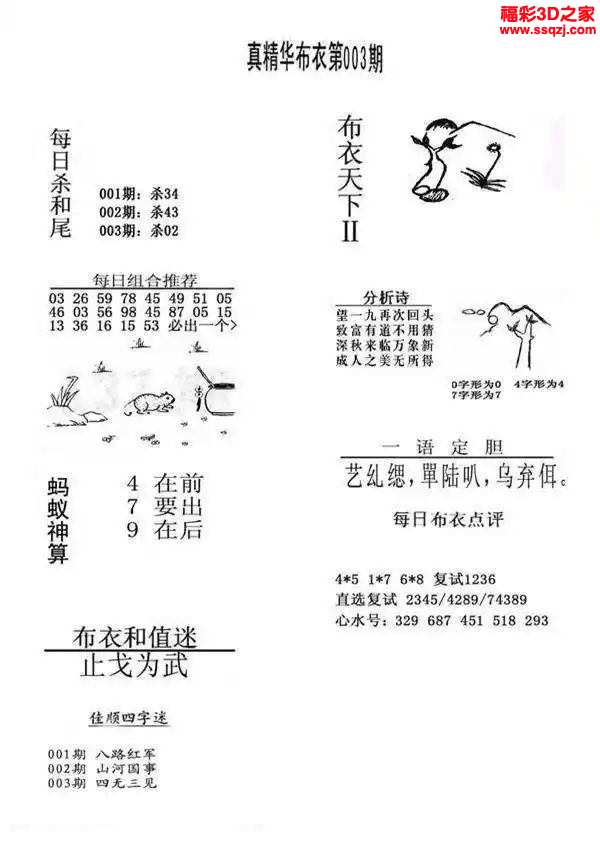 福彩3D之家
www.ssqzj.com
真精华布衣第003期
每日杀和尾
001期：杀34
002期：杀43
003期：杀02
布衣天下II
每日组合推荐
03 26 59 78 45 49 51 05
46 03 56 98 45 87 05 15
13 36 16 15 53 必出一个>
分析诗
望一九再次回头
致富有道不用猜
深秋来临万象新
成人之美无所得
0字形为0 4字形为4
7字形为7
蚂蚁神算
4 在前
7 要出
9 在后
一语定胆
艺乣缌，單陆叭，乌弃佴。
每日布衣点评
4*5 1*7 6*8 复试1236
直选复试 2345/4289/74389
心水号：329 687 451 518 293
布衣和值迷
止戈为武
佳顺四字迷
001期 八路红军
002期 山河国事
003期 四无三见